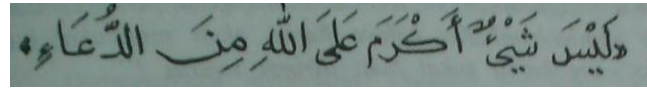 «لَيْسَ شَيْئٌ أَكْرَمَ عَلَى اللهِ مِنَ الدُّعَاءِ»